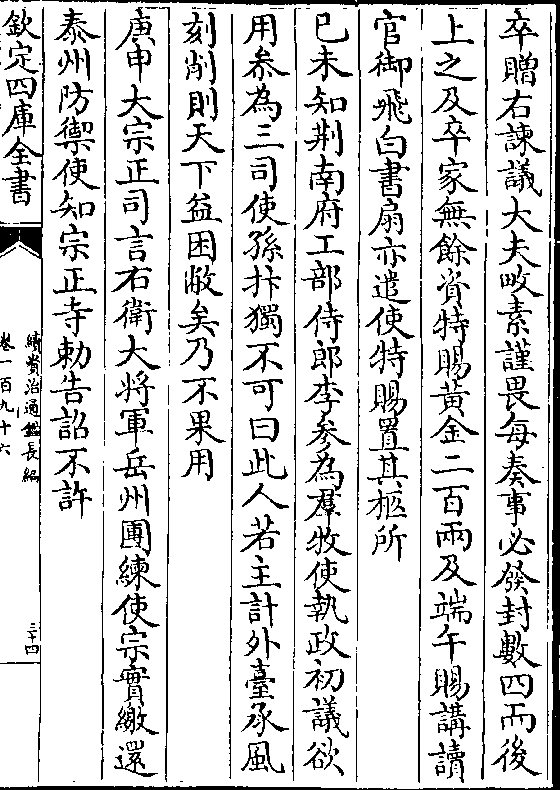 卒贈右諫議大夫畋素謹畏每奏事必發封數四而後
上之及卒家無餘資特賜黃金二百兩及端午賜講讀
官御飛白書扇亦遣使特賜置其柩所
已未知荆南府工部侍郎李參為羣牧使執政初議欲
用叅為三司使孫抃獨不可曰此人若主計外臺承風
刻削則天下益困敝矣乃不果用
庚申大宗正司言右衛大將軍岳州團練使宗實繳還
泰州防禦使知宗正寺勅告詔不許
欽定四庫全書
續資治通鑑長編
卷一百九十六
三十四